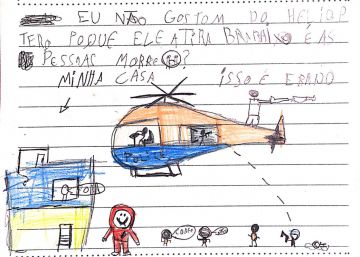 EU NÃO GOSTOM DO HELIOP
TERO POQUE ELE ATIRA BAIXO E AS
PESSOAS MORRE?
MINHA CASA
ISSO É ERADO